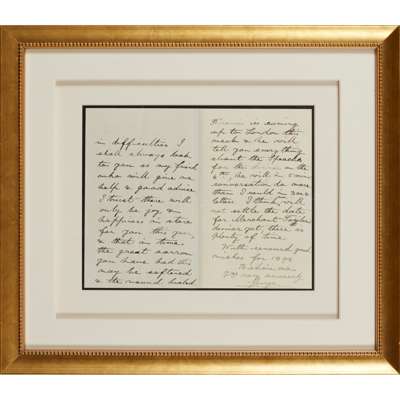 in difficulties I
shall always look
to you as my friend
who will give me
help & good advice
I trust there will
only be joy &
happiness in store
for you this year,
& that in time
the great sorrow
you have had this
may be softened
& the wound healed
is coming
up to London this
week & he will
tell you everything
about the Speech
for the on the
6th, he will in 5 min
conversation do more
than I could in
letter I think, will
not settle the date
for Merchant Taylor
dinner yet, there is
plenty of time.
With renewed good
wishes for
Believe me
very sincerely
George